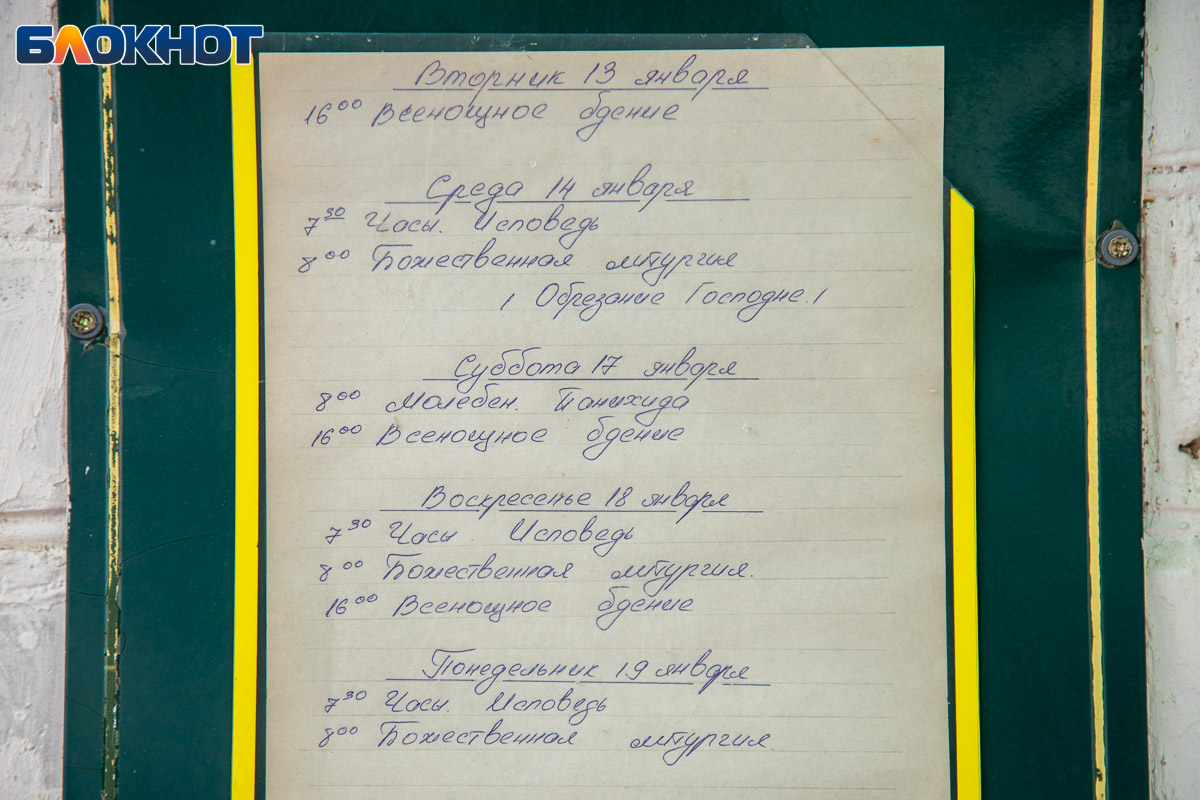 БЛОКНОТ
Вторник 13 января
16⁰⁰ Всенощное бдение
Среда 14 января
7³⁰ Часы. Исповедь
8⁰⁰ Божественная литургия
( Обрезание Господне. )
Суббота 17 января
8⁰⁰ Молебен. Панихида
16⁰⁰ Всенощное бдение
Воскресенье 18 января
7³⁰ Часы. Исповедь
8⁰⁰ Божественная литургия.
16⁰⁰ Всенощное бдение
Понедельник 19 января
7³⁰ Часы. Исповедь
8⁰⁰ Божественная литургия.